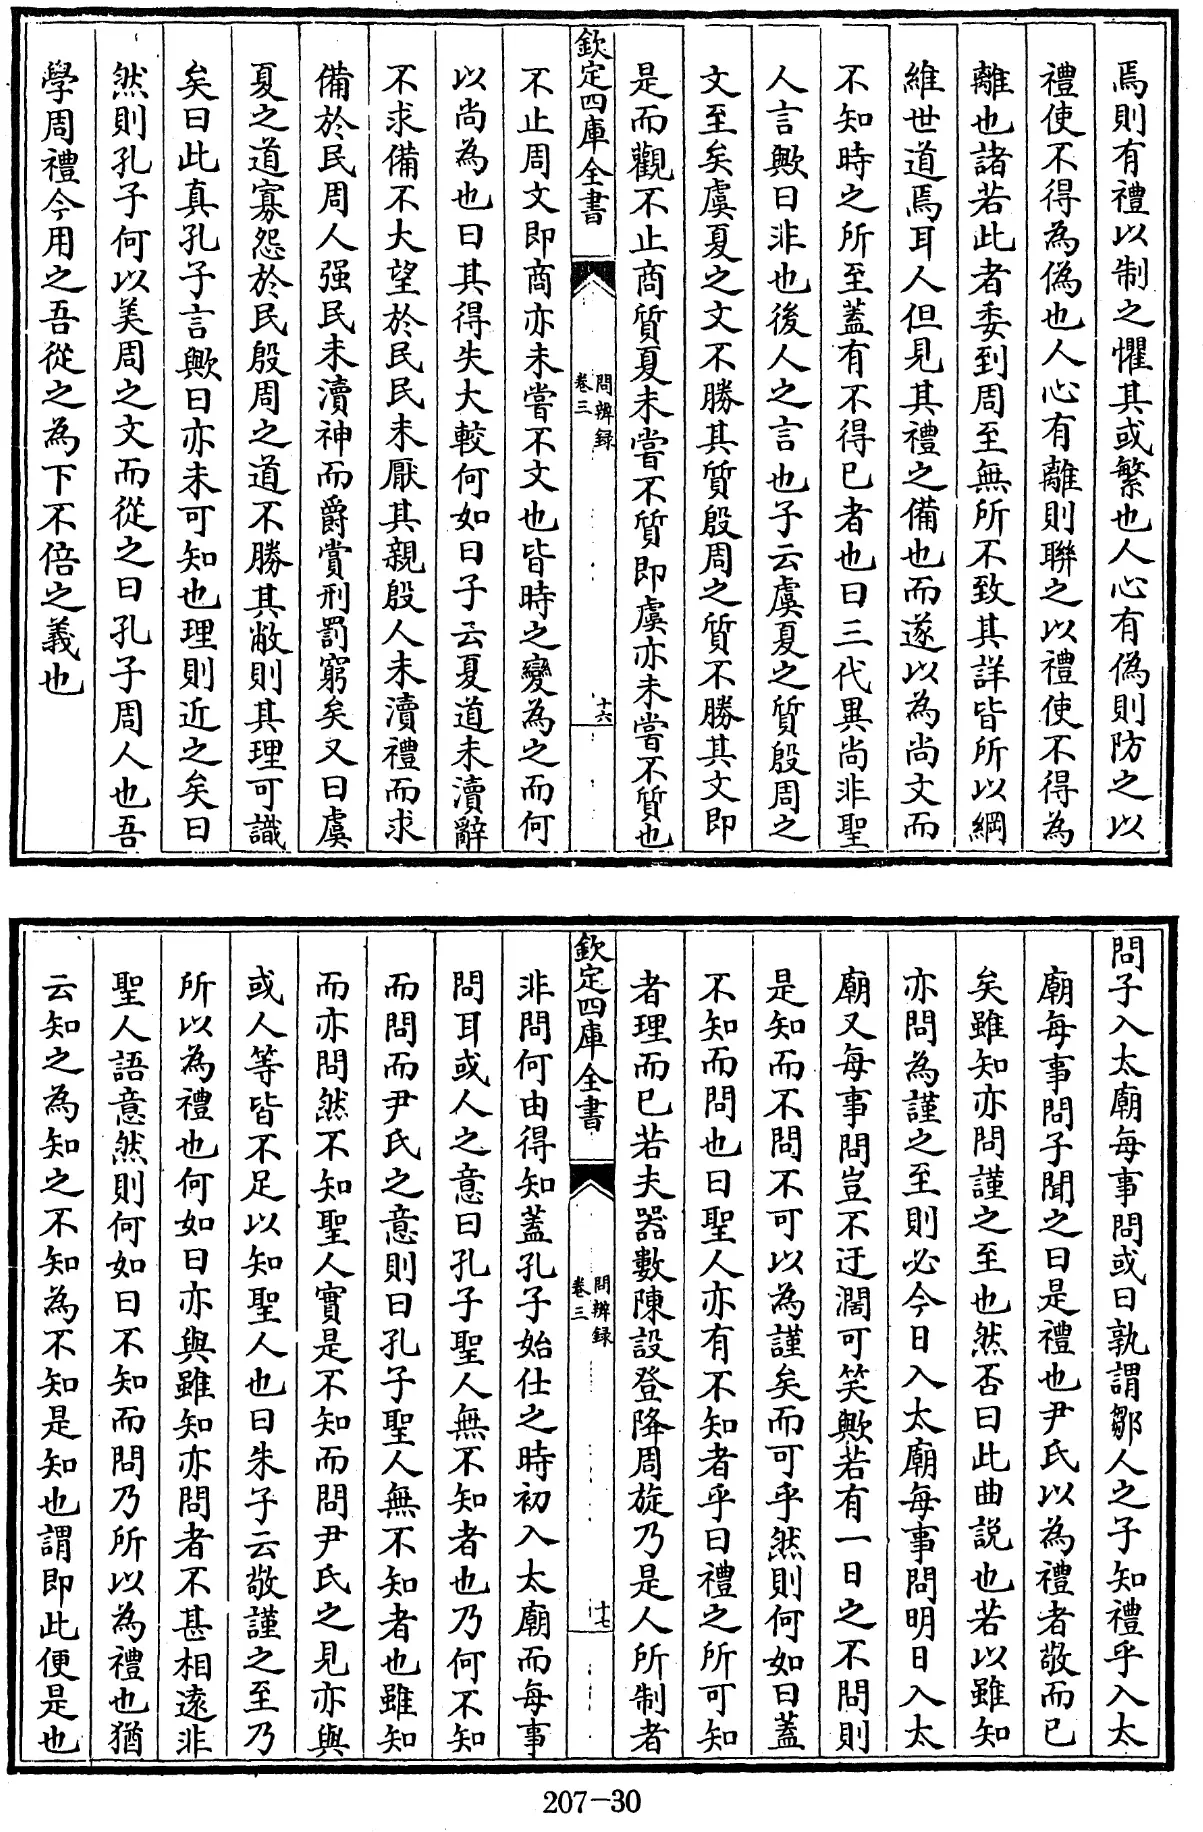 焉則有禮以制之懼其或繁也人心有偽則防之以
禮使不得為偽也人心有離則聯之以禮使不得為
離也諸若此者委到周至無所不致其詳皆所以綱
維世道焉耳人但見其禮之備也而遂以為尚文而
不知時之所至蓋有不得已者也曰三代異尚非聖
人言歟曰非也後人之言也子云虞夏之質殷周之
文至矣虞夏之文不勝其質殷周之質不勝其文即
是而觀不止商質夏未嘗不質即虞亦未嘗不質也
欽定四庫全書
問辨録
卷三
十六
不止周文即商亦未嘗不文也皆時之變為之而何
以尚為也曰其得失大較何如曰子云夏道未瀆辭
不求備不大望於民民未厭其親殷人未瀆禮而求
備於民周人强民未瀆神而爵賞刑罰窮矣又曰虞
夏之道寡怨於民殷周之道不勝其敝則其理可識
矣曰此真孔子言歟曰亦未可知也理則近之矣曰
然則孔子何以美周之文而從之曰孔子周人也吾
學周禮今用之吾從之為下不倍之義也
問子入太廟每事問或曰孰謂鄹人之子知禮乎入太
廟每事問子聞之曰是禮也尹氏以為禮者敬而已
矣雖知亦問謹之至也然否曰此曲説也若以雖知
亦問為謹之至則必今日入太廟每事問明日入太
廟又每事問豈不迂濶可笑歟若有一日之不問則
是知而不問不可以為謹矣而可乎然則何如曰蓋
不知而問也曰聖人亦有不知者乎曰禮之所可知
者理而已若夫器數陳設登降周旋乃是人所制者
欽定四庫全書
問辨録
卷三
十七
非問何由得知蓋孔子始仕之時初入太廟而每事
問耳或人之意曰孔子聖人無不知者也乃何不知
而問而尹氏之意則曰孔子聖人無不知者也雖知
而亦問然不知聖人實是不知而問尹氏之見亦與
或人等皆不足以知聖人也曰朱子云敬謹之至乃
所以為禮也何如曰亦與雖知亦問者不甚相遠非
聖人語意然則何如曰不知而問乃所以為禮也猶
云知之為知之不知為不知是知也謂即此便是也
207-30